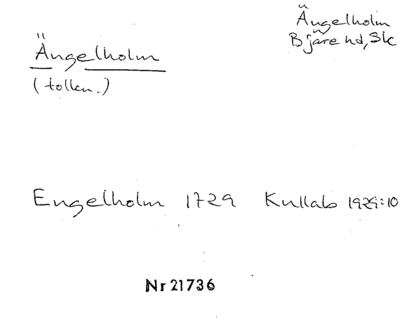 Ängelholm
Bjäre hd, Sk
Ängelholm
(tolkn.)
Engelholm 1729 Kullab 1929:10
Nr 21736